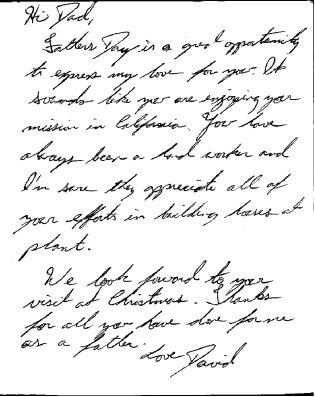 Hi Dad,
Fathers Day is a great opportunity
to express my love for you. It
sounds like you are enjoying your
mission in California. You have
always been a hard worker and
I'm sure they appreciate all of
your efforts in building bases at
plant.
We look foward to your
visit at Christmas. Thanks
for all you have done for me
as a father.
Love David